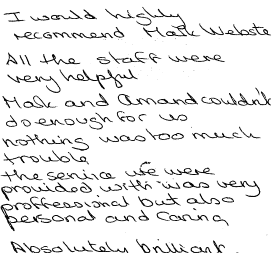 I would highly
recommend Mark Webste
All the staff were
very helpful
Mark and Amand couldn't
do enough for us
nothing was too much
trouble
the service we were
provided with was very
proffessional but also
personal and caring
Absolutely brilliant.